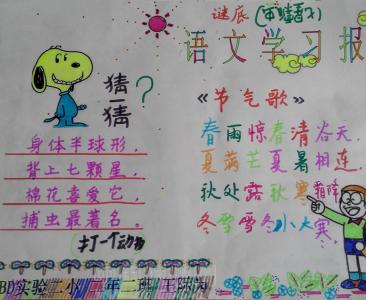 谜底
语文学习报
猜一猜?
身体半球形,
背上七颗星,
棉花喜爱它,
捕虫最著名。
打一个动物
《节气歌》
春雨惊春清谷天,
夏满芒夏暑相连,
秋处露秋寒霜降
冬雪雪冬小大寒.
实验二小二年二班